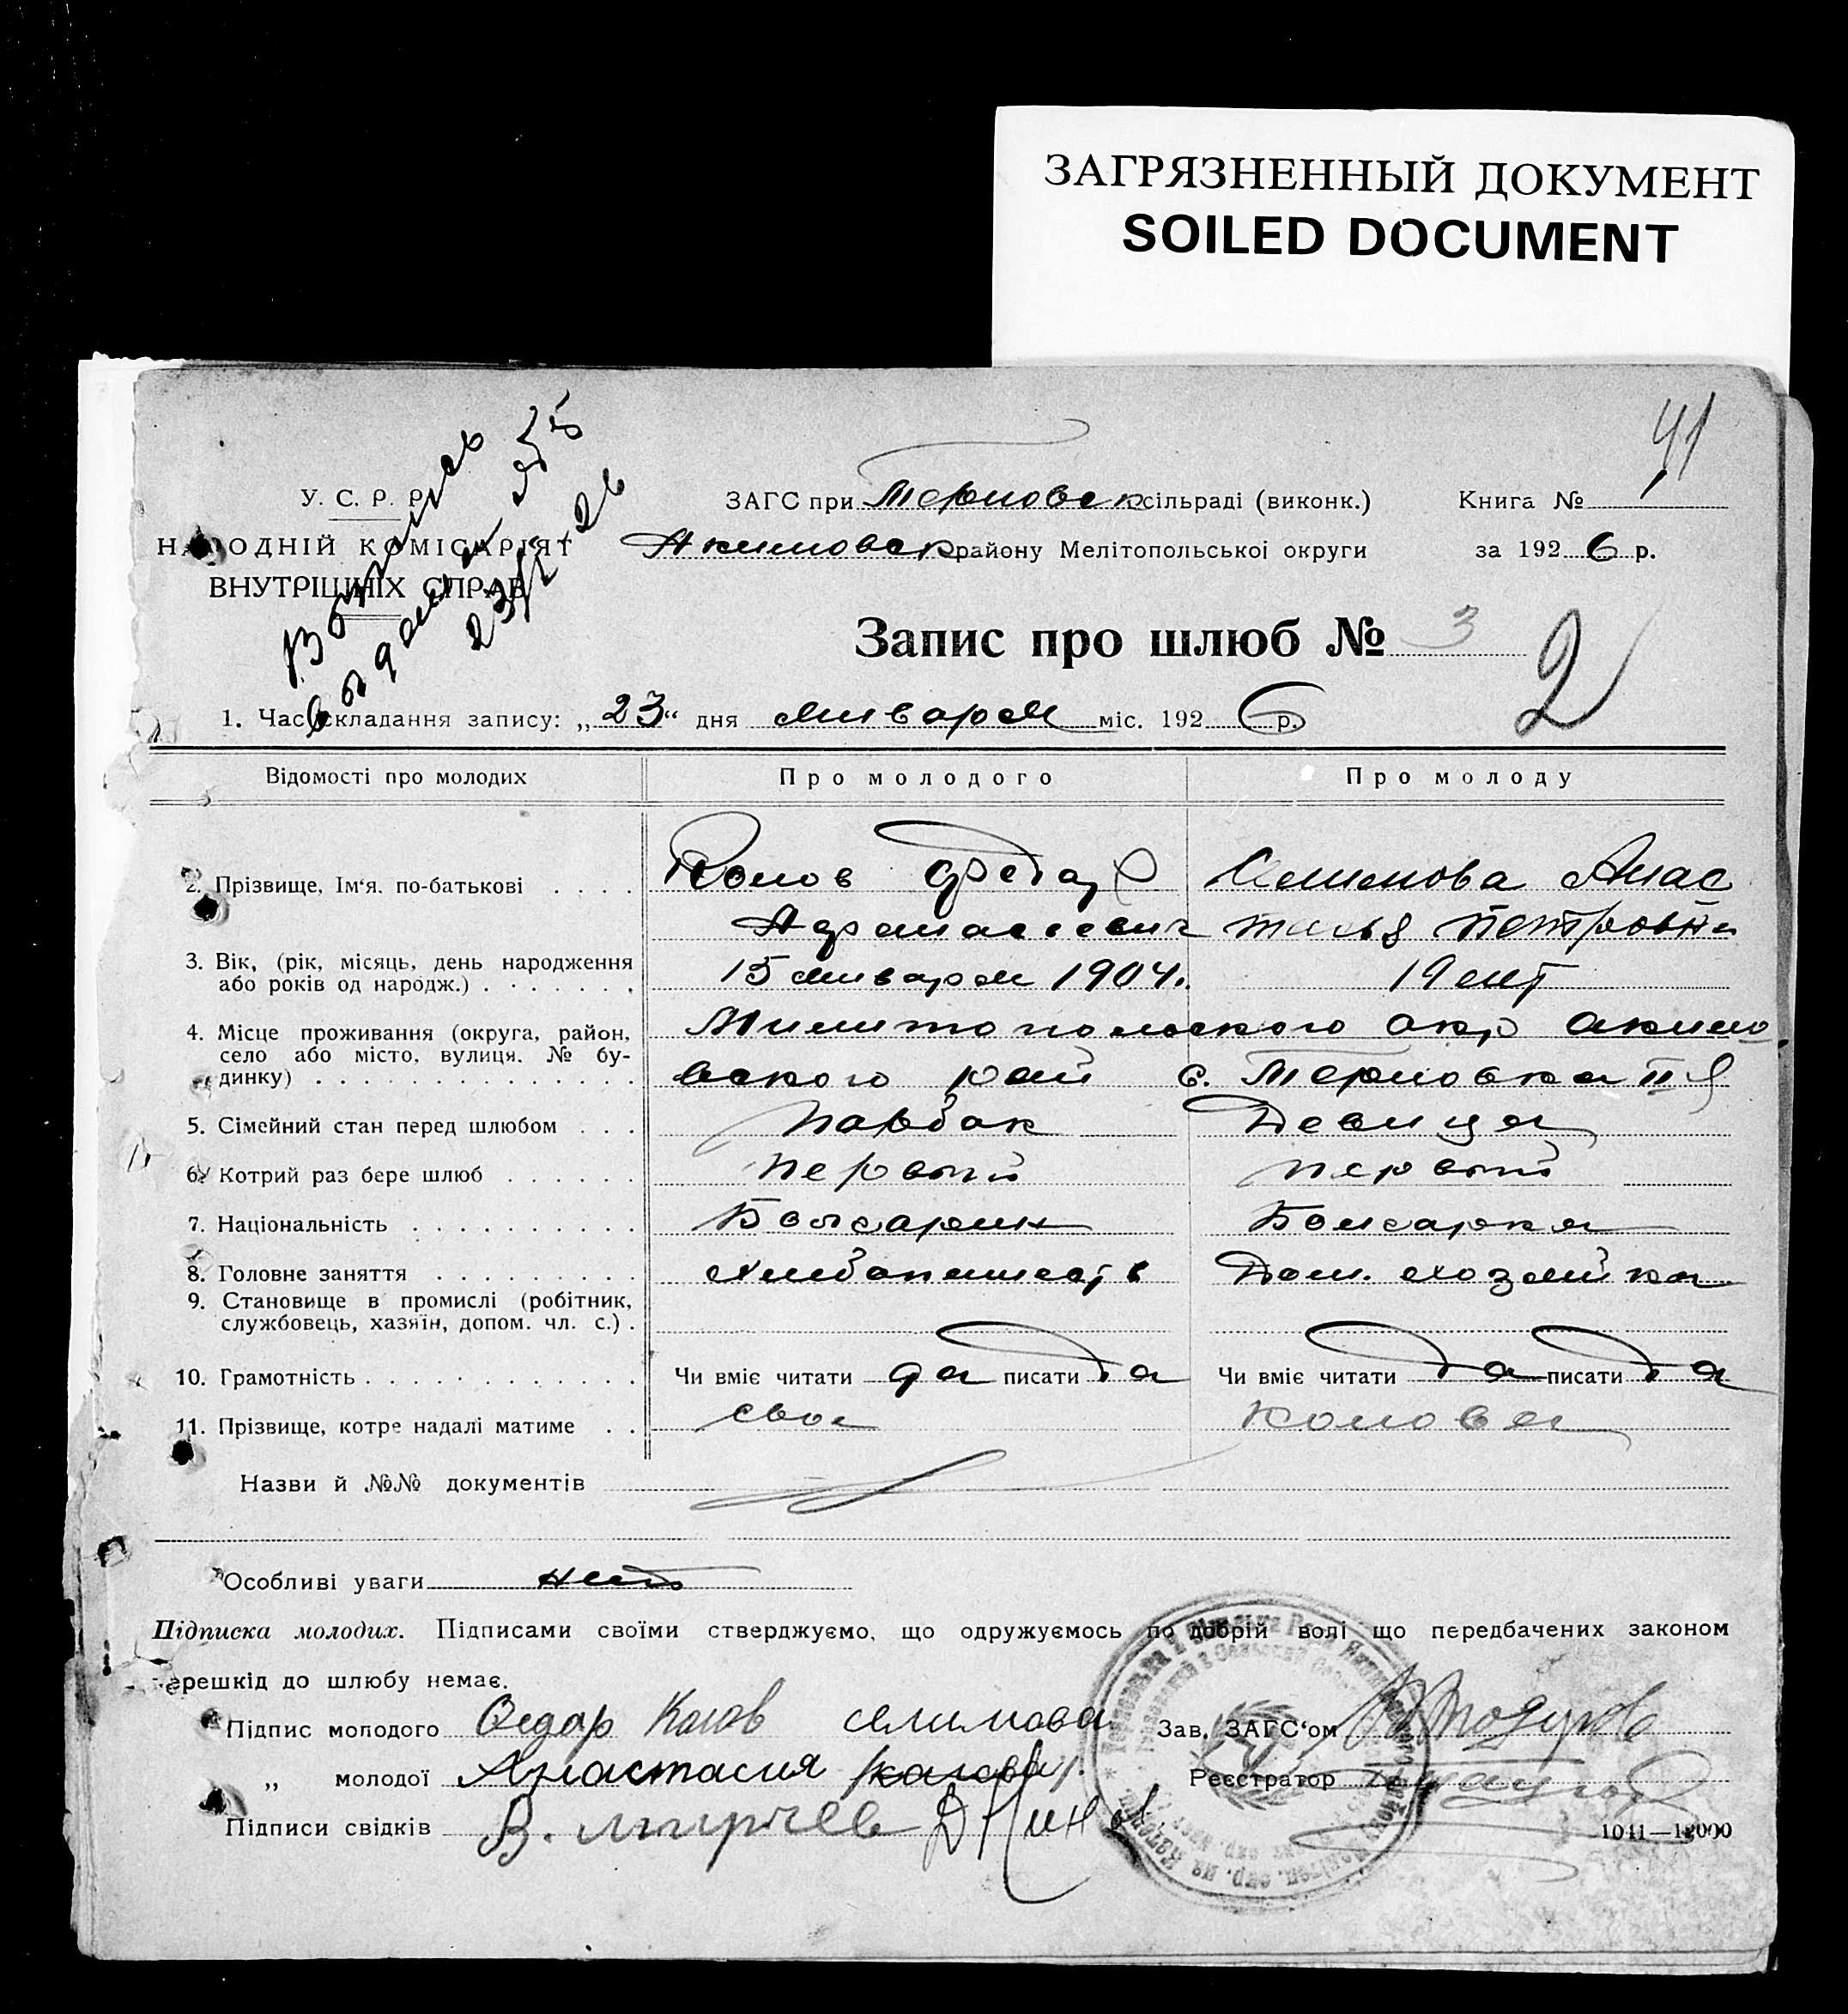 ЗАГРЯЗНЕННЫЙ ДОКУМЕНТ
SOILED DOCUMENT
41
У. С. Р. Р.
НАРОДНІЙ КОМІСАРІЯТ
ВНУТРІШНІХ СПРАВ
Выпись
выдана
23/I 26
ЗАГС при Терновск сільраді (виконк.)
Книга № 1
Акимовск району Мелітопольської округи
за 1926 р.
Запис про шлюб № 3
2
1. Час складання запису: „23“ дня января міс. 1926 р.
Відомості про молодих Про молодого Про молоду
2. Прізвище, Ім'я, по-батькові . . . . Колов Федар Селимова Анас
Афанасьевич тасья Петровна
3. Вік, (рік, місяць, день народження
або років од народж.) . . . . . . . 15 января 1904. 19 лет
4. Місце проживання (округа, район, Милитопольского окр акимо
село або місто, вулиця, № бу-
динку) . . . . . . . . . . . . . . вского рай с. Терновка II я
5. Сімейний стан перед шлюбом . . . Парбак Девица
6. Котрий раз бере шлюб . . . . . . первый первый
7. Національність . . . . . . . . . . Болгарин Болгарка
8. Головне заняття . . . . . . . . . Хлебопашесть Дом. хозяйка
9. Становище в промислі (робітник,
службовець, хазяїн, допом. чл. с.) .
10. Грамотність . . . . . . . . . . . . Чи вміє читати да писати да Чи вміє читати да писати да
11. Прізвище, котре надалі матиме . . своя Колова
Назви й №№ документів
Особливі уваги нет
Підписка молодих. Підписами своїми стверджуємо, що одружуємось по добрій волі що передбачених законом
перешкід до шлюбу немає.
Підпис молодого Федар Колов селимова Зав. ЗАГС'ом
„ молодої Анастасия Реєстратор
Підписи свідків В.
1041—12000